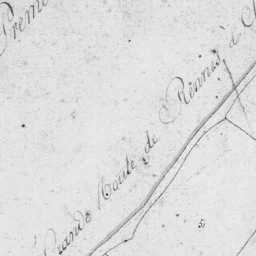 Preme
Grande Route de Rennes à C
5